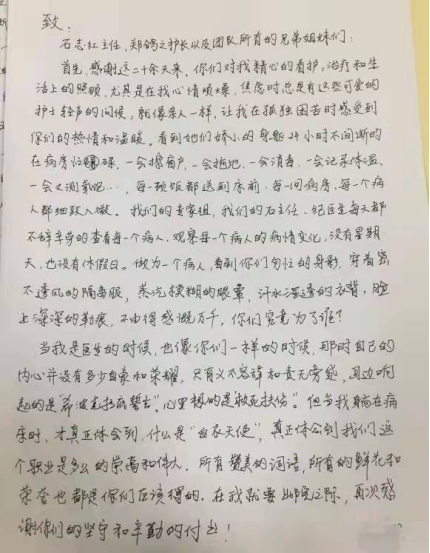 致：
石志红主任、郑鸽之护长以及团队所有的兄弟姐妹们：
首先，感谢这二十余天来，你们对我精心的看护，治疗和生
活上的照顾，尤其是在我心情烦燥、焦虑时总是有这些可爱的
护士轻声的问候，就像亲人一样，让我在孤独困苦时感受到
你们的热情和温暖。看到她们娇小的身躯24小时不间断的
在病房忙碌，一会擦窗户，一会拖地，一会消毒，一会记录体温、
一会又测氧饱…，每一顿饭都送到床前，每一间病房，每一个病
人都细致入微。我们的专家组，我们的石主任、纪医生每天都
不辞辛劳的查看每一个病人，观察每一个病人的病情变化，没有星期
天，也没有休假日。做为一个病人，看到你们匆忙的身影，穿着密
不透风的隔离服，蒸汽模糊的眼罩，汗水湿透的衣背，脸
上深深的勒痕，不由得感慨万千，你们究竟为了谁？
当我是医生的时候，也像你们一样的时候，那时自己的
内心并没有多少自豪和荣耀，只有义不容辞和责无旁贷，耳边响
起的是“希波克拉底誓言”，心里想的是救死扶伤”。但当我躺在病
床时，才真正体会到，什么是“白衣天使”，真正体会到我们这
个职业是多么的崇高和伟大，所有赞美的词语，所有的鲜花和
荣誉也都是你们应该得的。在我就要出院之际，再次感
谢你们的坚守和辛勤的付出！